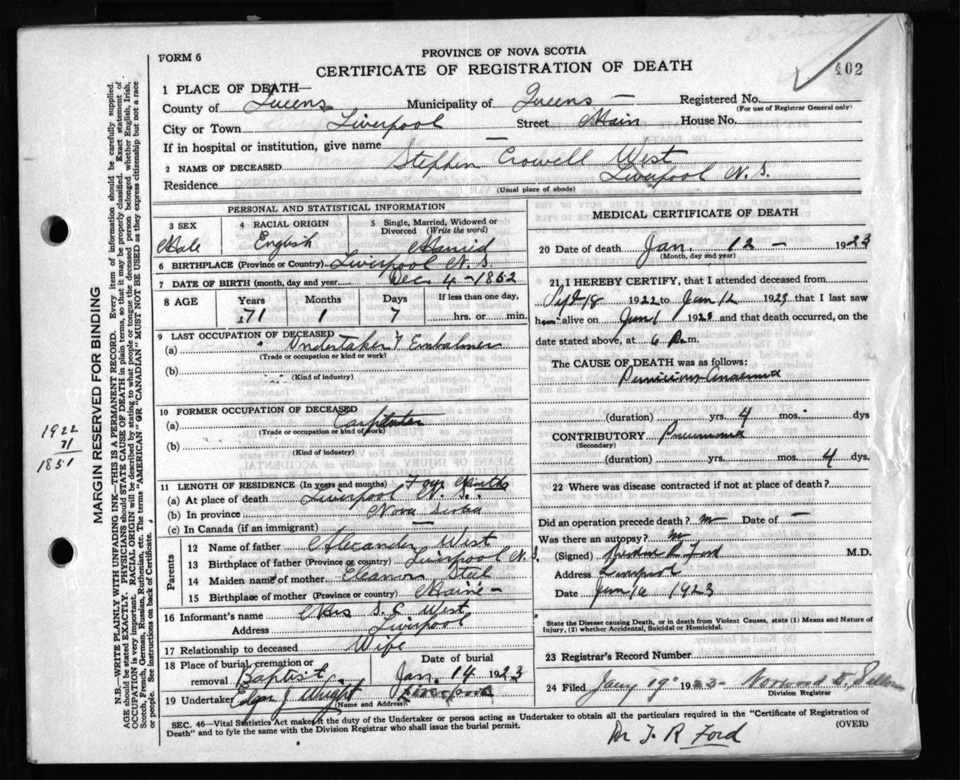 402
PROVINCE OF NOVA SCOTIA
FORM 6
CERTIFICATE OF REGISTRATION OF DEATH
1 PLACE OF DEATH—
County of Queens Municipality of Queens — Registered No.
(For use of Registrar General only)
City or Town Liverpool Street Main House No.
If in hospital or institution, give name —
2 NAME OF DECEASED Stephen Crowell West
Residence Liverpool N.S.
(Usual place of abode)
PERSONAL AND STATISTICAL INFORMATION
3 SEX 4 RACIAL ORIGIN 5 Single, Married, Widowed or Divorced (Write the word)
Male English Married
6 BIRTHPLACE (Province or Country) Liverpool N.S.
7 DATE OF BIRTH (month, day and year) Dec 4 - 1852
8 AGE Years Months Days If less than one day,
71 1 7 hrs. or min.
9 LAST OCCUPATION OF DECEASED
(a) Undertaker & Embalmer
(Trade or occupation or kind or work)
(b)
(Kind of industry)
10 FORMER OCCUPATION OF DECEASED
(a) Carpenter
(Trade or occupation or kind of work)
(b)
(Kind of industry)
11 LENGTH OF RESIDENCE (In years and months) Four Months
(a) At place of death Liverpool N.S.
(b) In province Nova Scotia
(c) In Canada (if an immigrant)
Parents
12 Name of father Alexander West
13 Birthplace of father (Province or country) Liverpool N.S.
14 Maiden name of mother Eleanor
15 Birthplace of mother (Province or country) Maine -
16 Informant's name Mrs S. C West
Address Liverpool
17 Relationship to deceased Wife
18 Place of burial, cremation or removal Baptist Date of burial Jan. 14 1923
19 Undertaker Edgar J Wright
(Name and Address)
MEDICAL CERTIFICATE OF DEATH
20 Date of death Jan. 12 - 1923
(Month, day and year)
21 I HEREBY CERTIFY, that I attended deceased from
Sept 18 1922 to Jan 12 192 that I last saw
him alive on Jan 192 and that death occurred, on the
date stated above, at 6 P.m.
The CAUSE OF DEATH was as follows:
Pernicious Anaemia
(duration) yrs. 4 mos. dys
CONTRIBUTORY Pneumonia
(Secondary)
(duration) yrs. mos. 4 dys.
22 Where was disease contracted if not at place of death?
Did an operation precede death? no Date of —
Was there an autopsy? no
(Signed) Ford M.D.
Address Liverpool
Date Jan 1923
State the Disease causing Death, or in death from Violent Causes, state (1) Means and Nature of
Injury, (2) whether Accidental, Suicidal or Homicidal.
23 Registrar's Record Number
24 Filed Jany 19th 1923 - Norwood
Division Registrar
SEC. 46—Vital Statistics Act makes it the duty of the Undertaker or person acting as Undertaker to obtain all the particulars required in the "Certificate of Registration of
Death" and to fyle the same with the Division Registrar who shall issue the burial permit. (OVER)
Dr J. R Ford
1922
71
1851
MARGIN RESERVED FOR BINDING
N.B.—WRITE PLAINLY WITH UNFADING INK—THIS IS A PERMANENT RECORD. Every item of information should be carefully supplied.
AGE should be stated EXACTLY. PHYSICIANS should STATE CAUSE OF DEATH in plain terms, so that it may be properly classified. Exact statement of
OCCUPATION is very important. RACIAL ORIGIN will be described by stating to what people or tongue the deceased person belonged whether English, Irish,
Scotch, French, German, Russian, Ruthenian, etc. The terms "AMERICAN" OR "CANADIAN" MUST NOT BE USED as they express citizenship but not a race
or people. See instructions on back of Certificate.